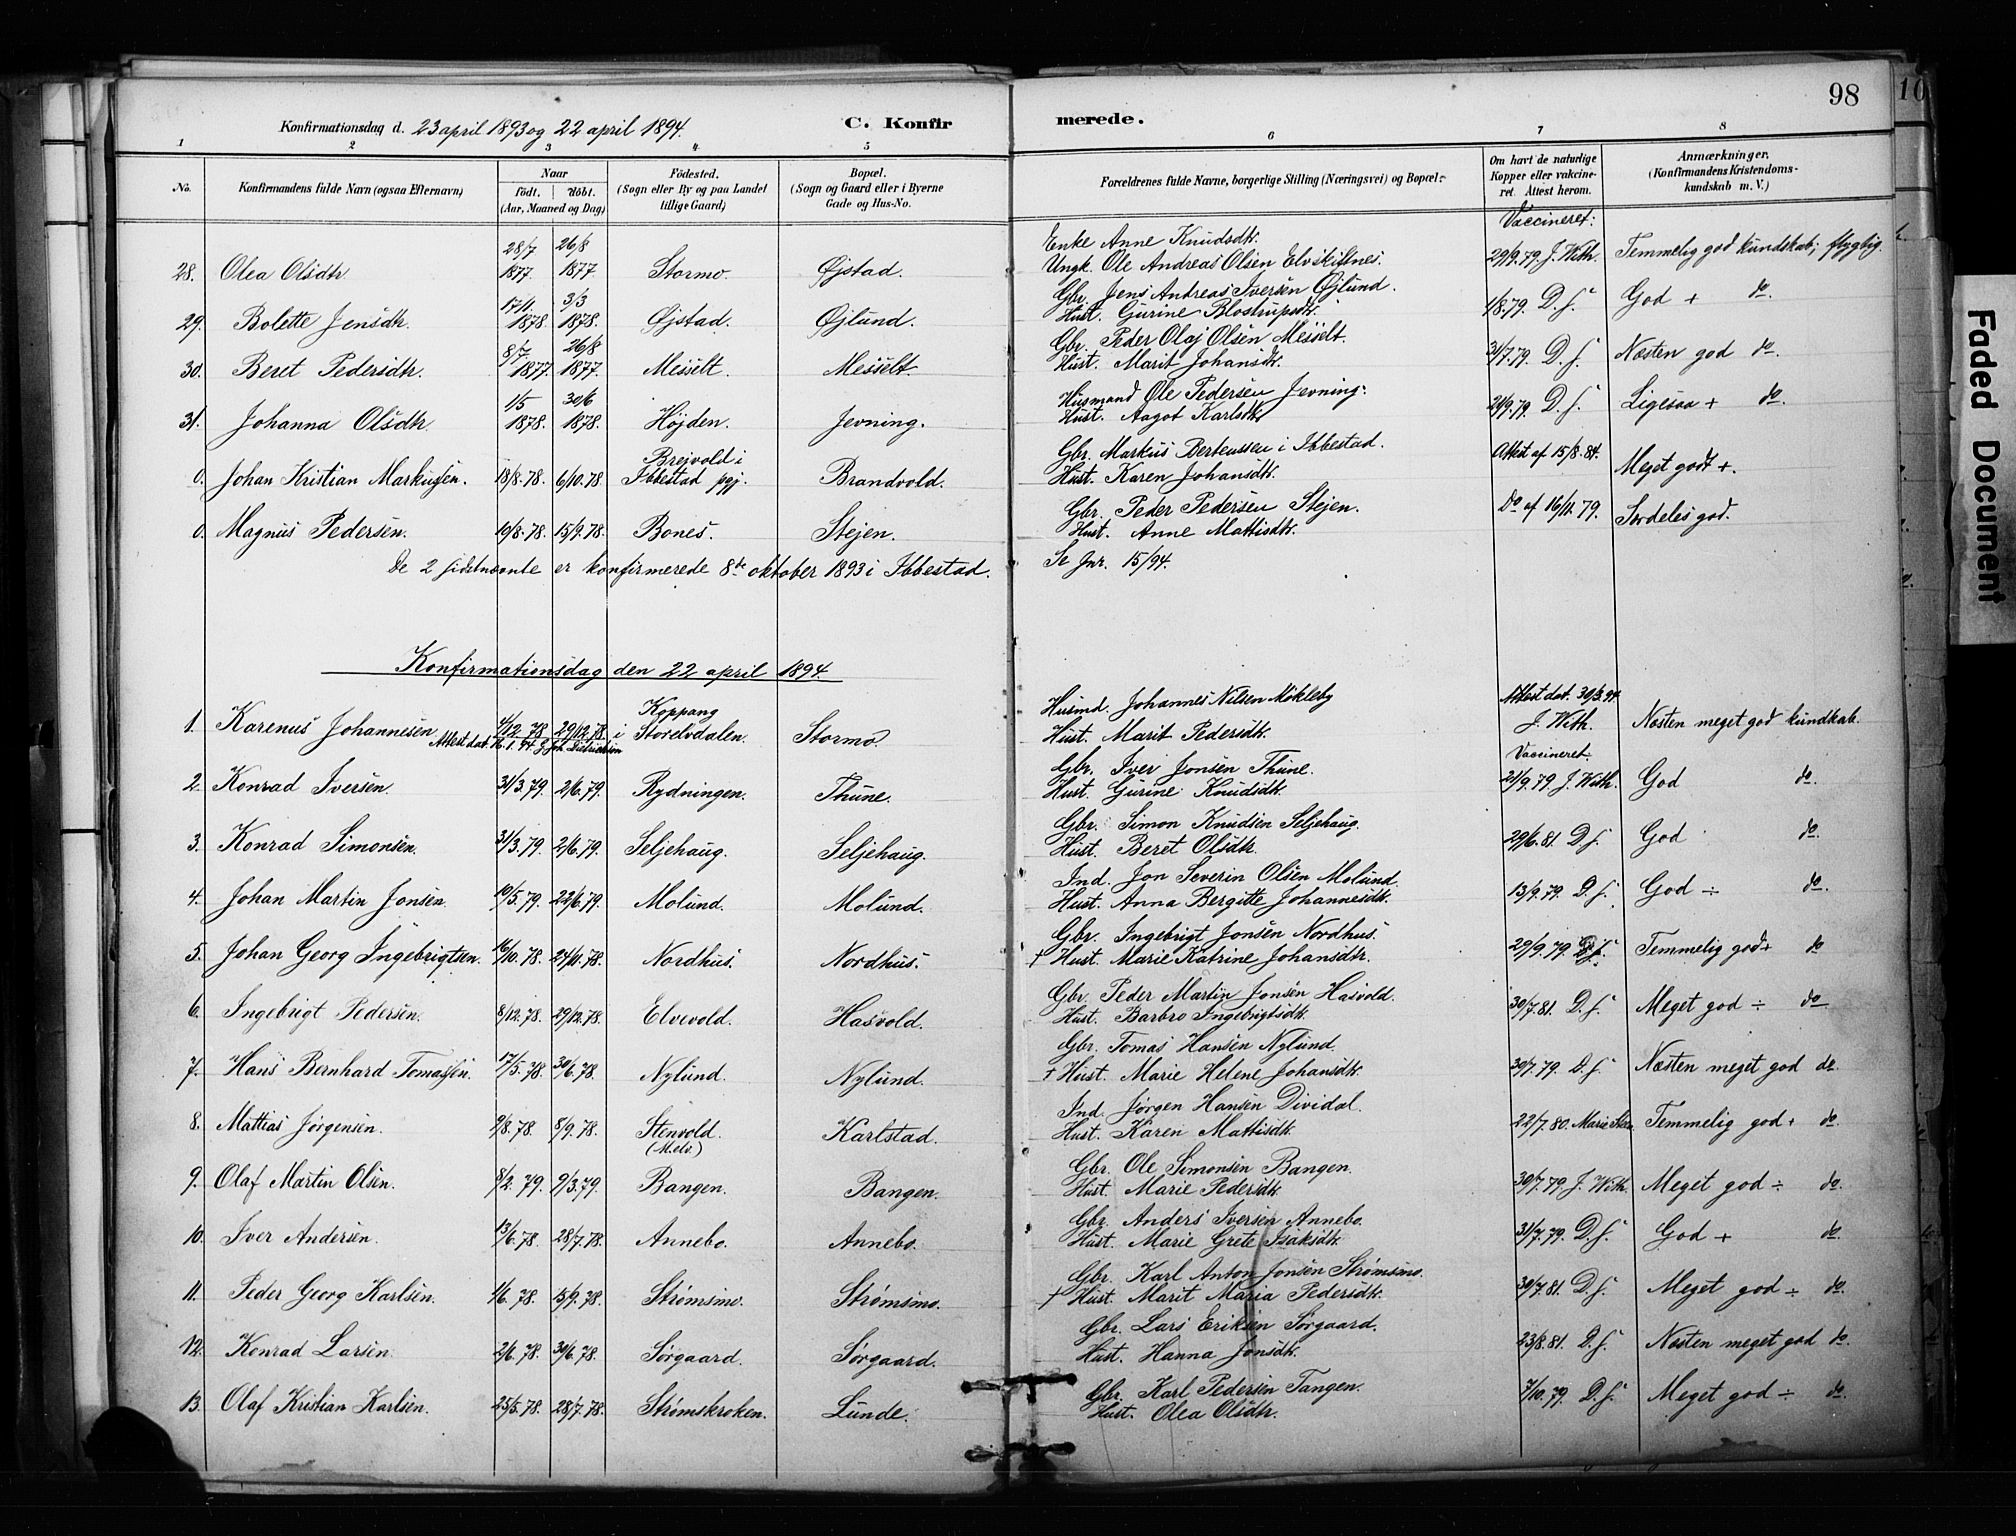 98
Konfirmationsdag d. 23 april 1893 og 22 april 1894. C. Konfirmerede.
1 2 3 4 5 6 7 8
No. Konfirmandens fulde Navn (ogsaa Efternavn) Naar født. døbt. (Aar, Maaned og Dag) Fødested. (Sogn eller By og paa Landet tillige Gaard) Bopæl. (Sogn og Gaard eller i Byerne Gade og Hus-No. Forældrenes fulde Navne, borgerlige Stilling (Næringsvei) og Bopæl. Om havt de naturlige Kopper eller vakcineret. Attest herom. Anmærkninger. (Konfirmandens Kristendomskundskab m. V.)
Vaccineret:
28. Olea Olsdtr. 28/7 1877. 26/8 1877. Stormo. Øjstad. Enke Anne Knudsdtr. Ungk. Ole Andreas Olsen Elvskiftnes. 29/9.79. J. With. Temmelig god kundskab; flygtig.
29. Bolette Jensdtr. 17/1 1878. 3/3 1878. Øjstad. Øjlund. Gbr. Jens Andreas Iversen Øjlund. Hust. Gurine Blostrupsdtr. 1/8.79. D. s. God + do.
30. Beret Pedersdtr. 8/7 1877. 26/8 1877. Messelt. Messelt. Gbr. Peder Olaj Olsen Messelt. Hust. Marit Johansdtr. 31/7.79. D. s. Næsten god do.
31. Johanna Olsdtr. 1/5 1878. 30/6 1878. Højden. Jevning. Husmand Ole Pedersen Jevning. Hust. Aagot Karlsdtr. 21/9.79. D. s. Ligesaa + do.
0. Johan Kristian Markussen. 18/8.78. 6/10.78. Brejvold i Ibbestad pgj. Brandvold. Gbr. Markus Berteussen i Ibbestad. Hust. Karen Johansdtr. Attest af 15/8.84. Meget godt +.
0. Magnus Pedersen. 19/8.78. 15/9.78. Bones. Stejen. Gbr. Peder Pedersen Stejen. Hust. Anne Mattisdtr. Do af 16/11.79. Særdeles god.
De 2 sidstnævnte er konfirmerede 8de oktober 1893 i Ibbestad. Se Jnr. 15/94.
Konfirmationsdag den 22 april 1894.
1. Karenus Johannesen. 4/12.78 29/12.78. Koppang i Storelvdalen. Stormo. Husmd. Johannes Nilsen Mökleby Hust. Marit Pedersdtr. Attest dat. 30/3.94. J. With. Næsten meget god kundskab.
Vaccineret.
2. Konrad Iversen. 31/3.79. 2/6.79. Rydningen. Thune. Gbr. Iver Jonsen Thune. Hust. Gurine Knudsdtr. 21/9.79 J. With. God do.
3. Konrad Simonsen. 31/3.79. 2/6.79. Seljehaug. Seljehaug. Gbr. Simon Knudsen Seljehaug. Hust. Beret Olsdtr. 29/6.81. D. s. God do.
4. Johan Martin Jonsen. 19/5.79. 22/6.79. Molund. Molund. Ind. Jon Severin Olsen Molund. Hust. Anna Bergitte Johannesdtr. 13/9.79. D. s. God ÷ do.
5. Johan Georg Ingebrigtsen. 16/10.78. 24/11.78. Nordhus. Nordhus. Gbr. Ingebrigt Jonsen Nordhus. † Hust. Marie Katrine Johansdtr. 29/9.79. D. s. Temmelig god+ do
6. Ingebrigt Pedersen. 8/12.78. 29/12.78. Elvevold. Hasvold. Gbr. Peder Martin Jonsen Hasvold. Hust. Barbro Ingebrigtsdtr. 30/7.81. D. s. Meget god ÷ do
7. Hans Bernhard Tomassen. 17/5.78. 30/6.78. Nylund. Nylund. Gbr. Tomas Hansen Nylund. † Hust. Marie Helene Johansdtr. 30/7.79. D. s. Næsten meget god do.
8. Mattias Jørgensen. 9/8.78. 8/9.78. Stenvold. (M.elv.) Karlstad. Ind. Jørgen Hansen Dividal. Hust. Karen Mattisdtr. 22/7.80. Temmelig god+ do.
9. Olaf Martin Olsen. 8/2.79. 9/3.79. Bangen. Bangen. Gbr. Ole Simonsen Bangen. Hust. Marie Pedersdtr. 30/7.79. J. With. Meget god ÷ do.
10. Iver Andersen. 13/6.78. 28/7.78. Annebo. Annebo. Gbr. Anders Iversen Annebo. Hust. Marie Grete Isaksdtr. 31/7.79. D. s. God + do.
11. Peder Georg Karlsen. 4/6.78. 15/9.78. Strømsmo. Strømsmo. Gbr. Karl Anton Jonsen Strømsmo. † Hust. Marit Maria Pedersdtr. 30/7.81. D. s. Meget god ÷ do.
12. Konrad Larsen. 2/6.78. 30/6.78. Sørgaard. Sørgaard. Gbr. Lars Eriksen Sørgaard. Hust. Hanna Jonsdtr. 23/8.81. D. s. Næsten meget god do.
13. Olaf Kristian Karlsen. 25/5.78. 28/7.78. Strømskroken. Lunde. Gbr. Karl Pedersen Tangen. Hust. Olea Olsdtr. 7/10.79. D. s. Meget god ÷ do.
Faded Document